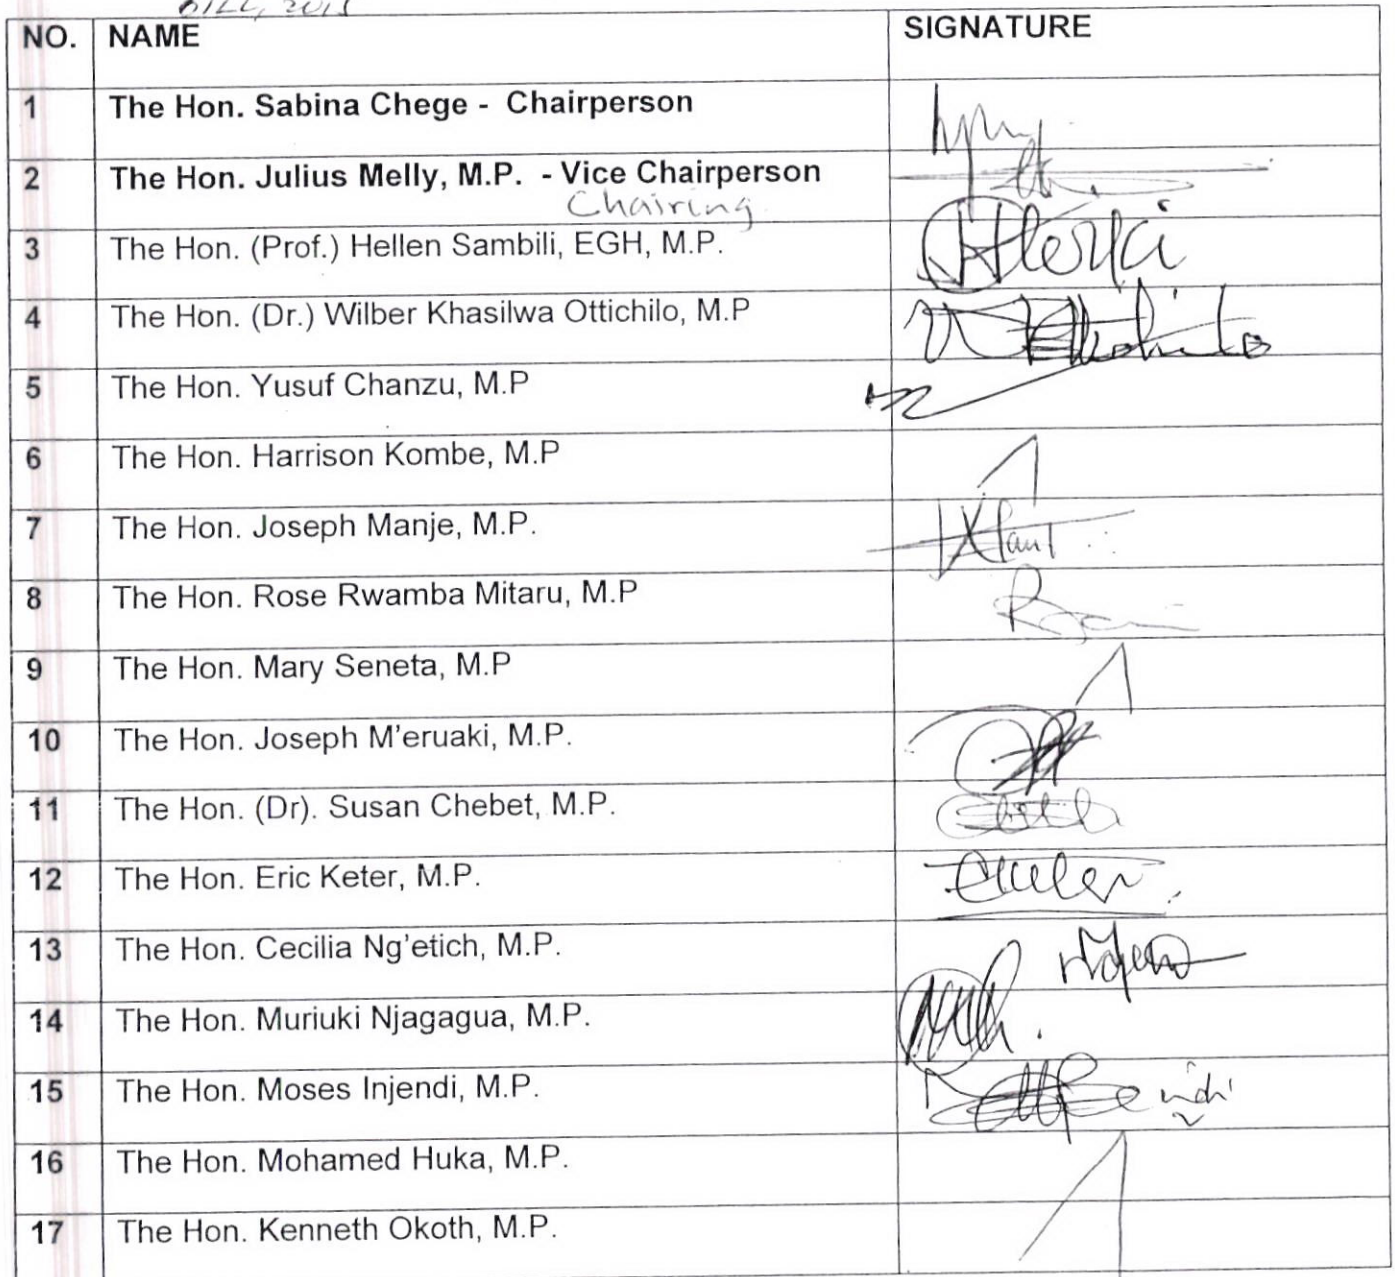 BILL, 2015
NO. NAME SIGNATURE
1 The Hon. Sabina Chege - Chairperson
2 The Hon. Julius Melly, M.P. - Vice Chairperson
Chairing
3 The Hon. (Prof.) Hellen Sambili, EGH, M.P.
4 The Hon. (Dr.) Wilber Khasilwa Ottichilo, M.P
5 The Hon. Yusuf Chanzu, M.P
6 The Hon. Harrison Kombe, M.P
7 The Hon. Joseph Manje, M.P.
8 The Hon. Rose Rwamba Mitaru, M.P
9 The Hon. Mary Seneta, M.P
10 The Hon. Joseph M'eruaki, M.P.
11 The Hon. (Dr). Susan Chebet, M.P.
12 The Hon. Eric Keter, M.P.
13 The Hon. Cecilia Ng'etich, M.P.
14 The Hon. Muriuki Njagagua, M.P.
15 The Hon. Moses Injendi, M.P.
16 The Hon. Mohamed Huka, M.P.
17 The Hon. Kenneth Okoth, M.P.